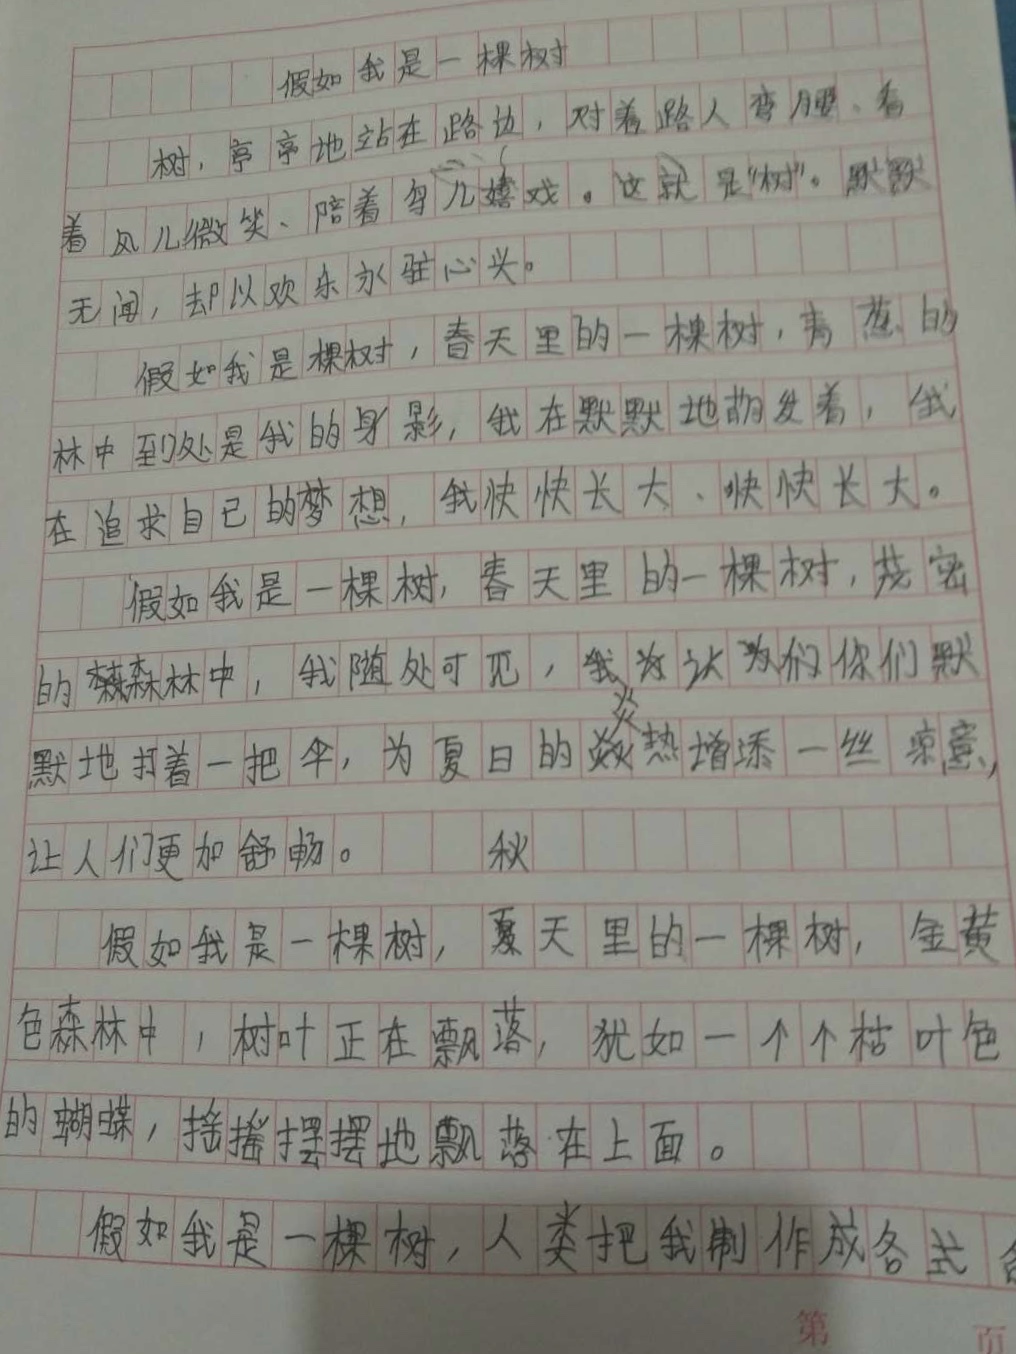 假如我是一棵树
树，亭亭地站在路边，对着路人弯腰、看
着风儿微笑、陪着鸟儿嬉戏。这就是"树"。默默
无闻，却以欢乐永驻心头。
假如我是棵树，春天里的一棵树，青葱的
林中到处是我的身影，我在默默地萌发着，我
在追求自己的梦想，我快快长大、快快长大。
假如我是一棵树，春天里的一棵树，茂密
的森林中，我随处可见，我为你们默
炎
默地打着一把伞，为夏日的热增添一丝凉意，
让人们更加舒畅。
秋
假如我是一棵树，夏天里的一棵树，金黄
色森林中，树叶正在飘落，犹如一个个枯叶色
的蝴蝶，摇摇摆摆地飘落在上面。
假如我是一棵树，人类把我制作成各式各
第 页